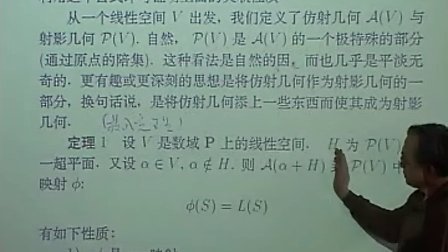 从一个线性空间 V 出发,我们定义了仿射几何 A(V) 与
射影几何 P(V). 自然, P(V) 是 A(V) 的一个极特殊的部分
(通过原点的陪集). 这种看法是自然的因, 而也几乎是平淡无
奇的. 更有趣或更深刻的思想是将仿射几何作为射影几何的一
部分, 换句话说, 是将仿射几何添上一些东西而使其成为射影
几何.
定理 1 设 V 是数域 P 上的线性空间. H 为 P(V)
一超平面. 又设 α ∈ V, α ∉ H. 则 A(α + H) P(V) 中
映射 ϕ:
ϕ(S) = L(S)
有如下性质: